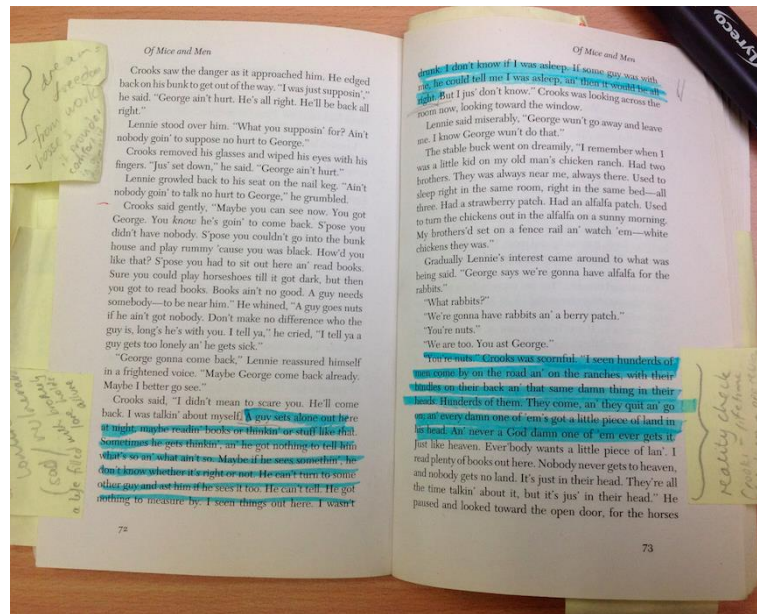 Of Mice and Men
Crooks saw the danger as it approached him. He edged
back on his bunk to get out of the way. "I was just supposin',"
he said. "George ain't hurt. He's all right. He'll be back all
right."
Lennie stood over him. "What you supposin' for? Ain't
nobody goin' to suppose no hurt to George."
Crooks removed his glasses and wiped his eyes with his
fingers. "Jus' set down," he said. "George ain't hurt."
Lennie growled back to his seat on the nail keg. "Ain't
nobody goin' to talk no hurt to George," he grumbled.
Crooks said gently, "Maybe you can see now. You got
George. You know he's goin' to come back. S'pose you
didn't have nobody. S'pose you couldn't go into the bunk
house and play rummy 'cause you was black. How'd you
like that? S'pose you had to sit out here an' read books.
Sure you could play horseshoes till it got dark, but then
you got to read books. Books ain't no good. A guy needs
somebody—to be near him." He whined, "A guy goes nuts
if he ain't got nobody. Don't make no difference who the
guy is, long's he's with you. I tell ya," he cried, "I tell ya a
guy gets too lonely an' he gets sick."
"George gonna come back," Lennie reassured himself
in a frightened voice. "Maybe George come back already.
Maybe I better go see."
Crooks said, "I didn't mean to scare you. He'll come
back. I was talkin' about myself. A guy sets alone out here
at night, maybe readin' books or thinkin' or stuff like that.
Sometimes he gets thinkin', an' he got nothing to tell him
what's so an' what ain't so. Maybe if he sees somethin', he
don't know whether it's right or not. He can't turn to some
other guy and ast him if he sees it too. He can't tell. He got
nothing to measure by. I seen things out here. I wasn't
72
dream
freedom
from
work
(sad)
a life filled with
alone
Of Mice and Men
drunk. I don't know if I was asleep. If some guy was with
me, he could tell me I was asleep, an' then it would be all
right. But I jus' don't know." Crooks was looking across the
room now, looking toward the window.
Lennie said miserably, "George wun't go away and leave
me. I know George wun't do that."
The stable buck went on dreamily, "I remember when I
was a little kid on my old man's chicken ranch. Had two
brothers. They was always near me, always there. Used to
sleep right in the same room, right in the same bed—all
three. Had a strawberry patch. Had an alfalfa patch. Used
to turn the chickens out in the alfalfa on a sunny morning.
My brothers'd set on a fence rail an' watch 'em—white
chickens they was."
Gradually Lennie's interest came around to what was
being said. "George says we're gonna have alfalfa for the
rabbits."
"What rabbits?"
"We're gonna have rabbits an' a berry patch."
"You're nuts."
"We are too. You ast George."
"You're nuts." Crooks was scornful. "I seen hunderds of
men come by on the road an' on the ranches, with their
bindles on their back an' that same damn thing in their
heads. Hunderds of them. They come, an' they quit an' go
on; an' every damn one of 'em's got a little piece of land in
his head. An' never a God damn one of 'em ever gets it.
Just like heaven. Ever'body wants a little piece of lan'. I
read plenty of books out here. Nobody never gets to heaven,
and nobody gets no land. It's just in their head. They're all
the time talkin' about it, but it's jus' in their head." He
paused and looked toward the open door, for the horses
73
reality check
Lyreco